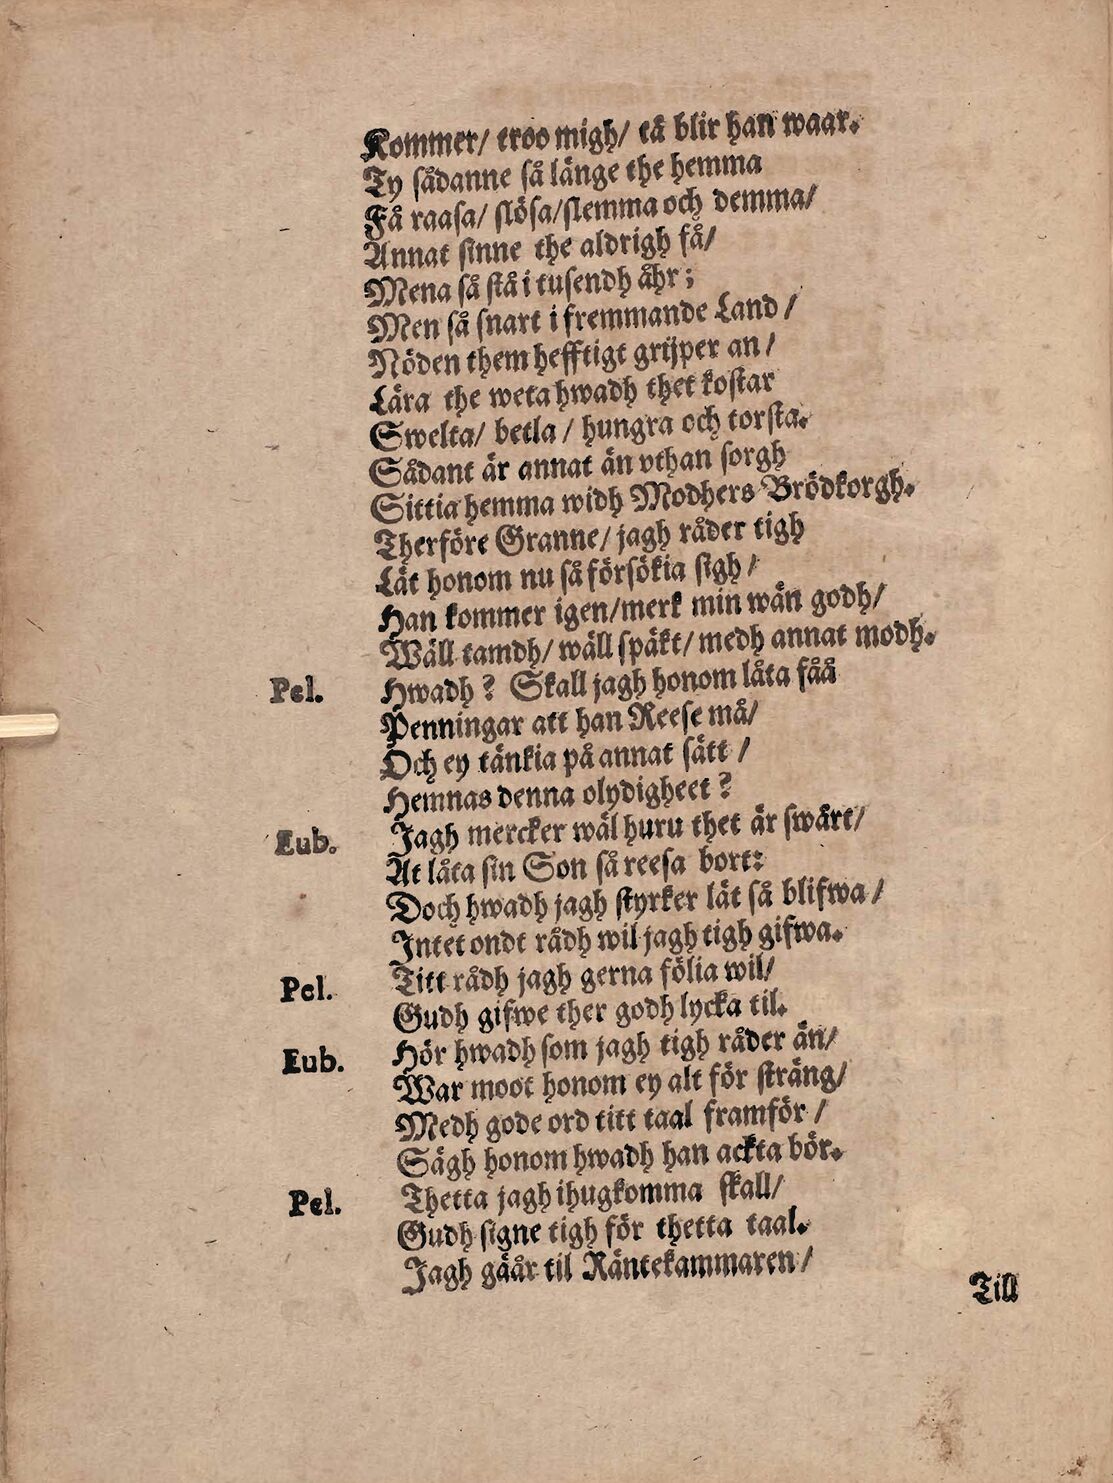 Kommer/ troo migh/ tå blir han waar.
Ty sådanne så länge the hemma
Få raasa/ slösa/slemma och demma/
Annat sinne the aldrigh få/
Mena så stå i tusendh åhr;
Men så snart i fremmande Land/
Nöden them hefftigt grijper an/
Lära the weta hwadh thet kostar
Swelta/ betla/ hungra och torsta.
Sådant är annat än vthan sorgh
Sittia hemma widh Modhers Brödkorgh.
Therföre Granne/ jagh råder tigh
Lät honom nu så försökia sigh/
Han kommer igen/merk min wän godh/
Wäll tamdh/ wäll späkt/ medh annat modh.
Pel. Hwadh? Skall jagh honom låta fåå
Penningar att han Reese må/
Och ey tänkia på annat sätt/
Hemnas denna olydigheet?
Eub. Jagh mercker wäl huru thet är swårt/
At låta sin Son så reesa bort:
Doch hwadh jagh styrker lät så blifwa/
Intet ondt rådh wil jagh tigh gifwa.
Pel. Titt rådh jagh gerna fölia wil/
Gudh gifwe ther godh lycka til.
Eub. Hör hwadh som jagh tigh råder än/
War moot honom ey alt för sträng/
Medh gode ord titt taal framför/
Sägh honom hwadh han ackta bör.
Pel. Thetta jagh ihugkomma skall/
Gudh signe tigh för thetta taal.
Jagh gåår til Räntekammaren/
Till